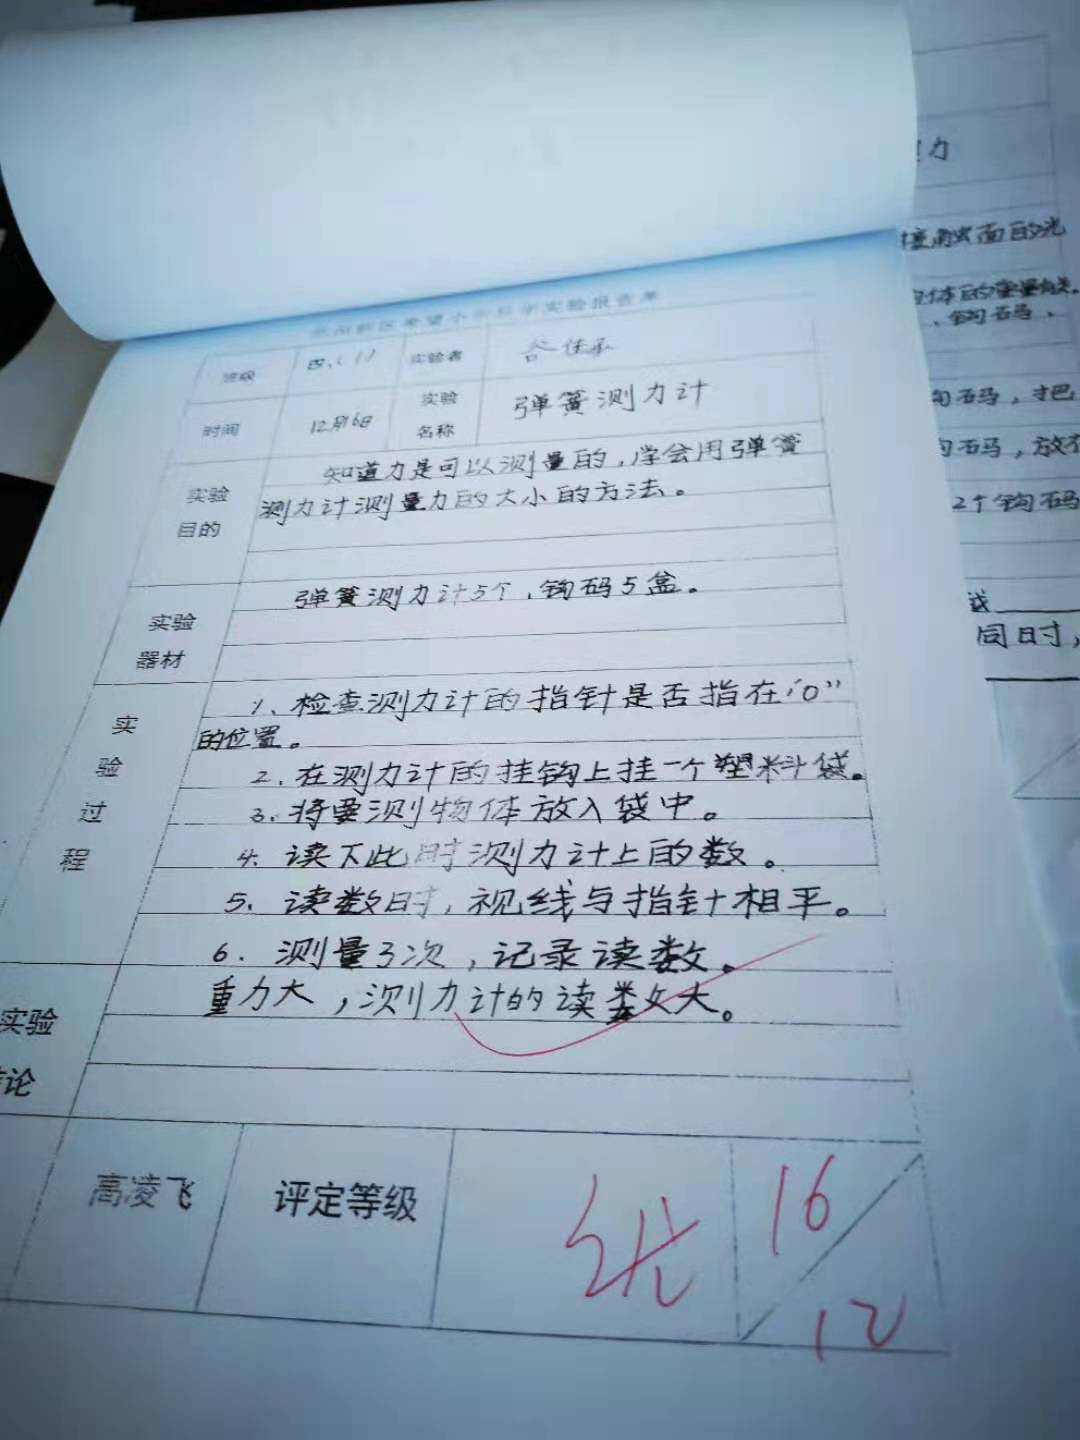 希望小学科学实验报告单
班级 四.(1) 实验者
时间 12月6日 实验名称 弹簧测力计
实验目的
知道力是可以测量的,学会用弹簧
测力计测量力的大小的方法。
实验器材
弹簧测力计5个,钩码5盒。
实验过程
1、检查测力计的指针是否指在"0"
的位置。
2.在测力计的挂钩上挂一个塑料袋。
3.将要测物体放入袋中。
4.读下此时测力计上的数。
5.读数时,视线与指针相平。
6.测量3次,记录读数。
实验
论
重力大,测力计的读数大。
高凌飞 评定等级 优 16/12
力
面的光
体的重量有关。
、钩码、
钩码,把
码,放在
2个钩码
同时,